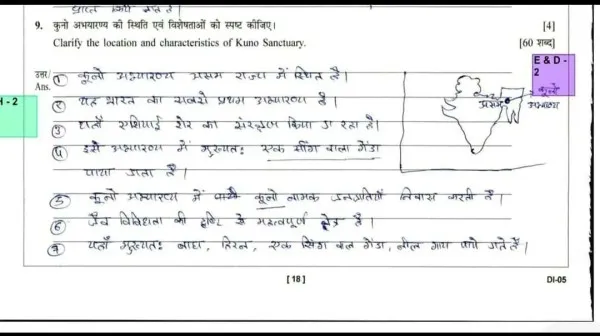 9. कुनो अभयारण्य की स्थिति एवं विशेषताओं को स्पष्ट कीजिए। [4]
Clarify the location and characteristics of Kuno Sanctuary. [60 शब्द]
E & D - 2
उत्तर/ Ans.
① कूनो अभ्यारण्य असम राज्य में स्थित है।
② यह भारत का सबसे प्रथम अभ्यारण्य है।
③ यहाँ एशियाई शेर का संरक्षण किया जा रहा है।
④ इस अभ्यारण्य में मुख्यतः एक सींग वाला गेंडा
पाया जाता है।
असम
कूनो
अभ्यारण्य
I - 2
⑤ कूनो अभ्यारण्य में कूनो नामक जनजातियाँ निवास करती हैं।
⑥ जैव विविधता की दृष्टि से महत्वपूर्ण क्षेत्र है।
⑦ यहाँ मुख्यतः बाघ, हिरन, एक सिंग वाल गेंडा, नील गाय पाये जाते हैं।
[ 18 ]
DI-05